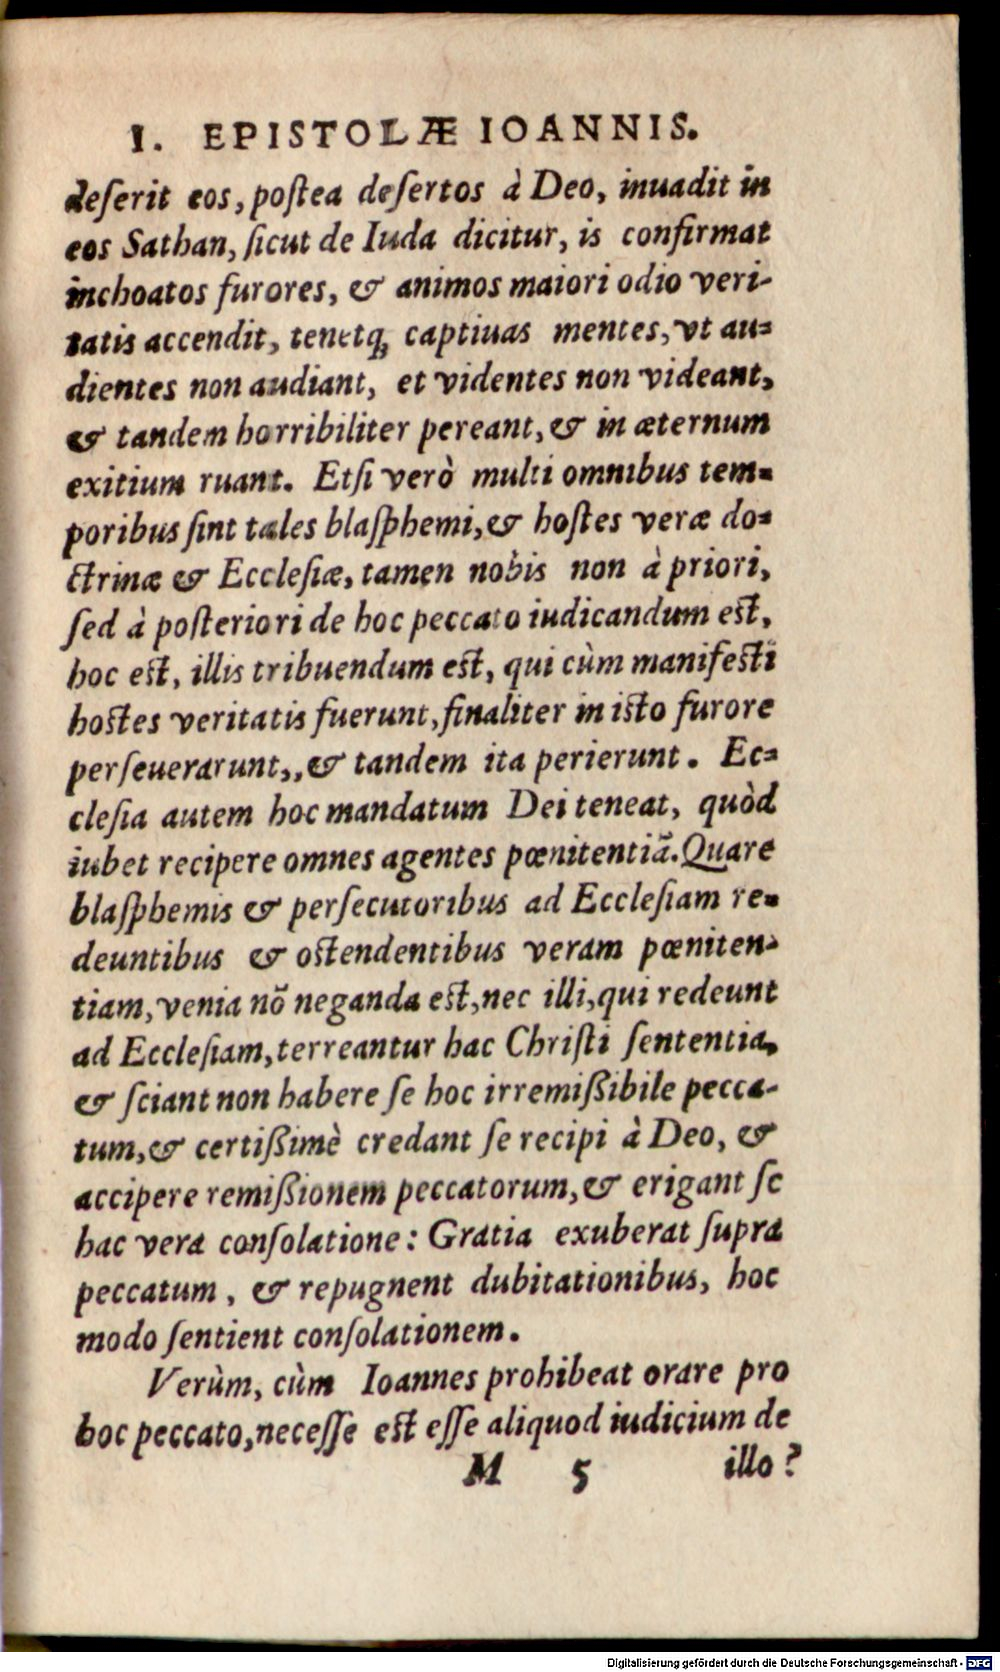 I. EPISTOLÆ IOANNIS.
deſerit eos, poſtea deſertos à Deo, inuadit in
eos Sathan, ſicut de Iuda dicitur, is confirmat
inchoatos furores, & animos maiori odio veri-
tatis accendit, tenetq́, captiuas mentes, vt au-
dientes non audiant, et videntes non videant,
& tandem horribiliter pereant, & in æternum
exitium ruant. Etſi verò multi omnibus tem-
poribus ſint tales blaſphemi, & hoſtes veræ do-
ctrinæ & Eccleſiæ, tamen nobis non à priori,
ſed à poſteriori de hoc peccato iudicandum eſt,
hoc eſt, illis tribuendum eſt, qui cùm manifeſti
hoſtes veritatis fuerunt, finaliter in iſto furore
perſeuerarunt,, & tandem ita perierunt. Ec-
cleſia autem hoc mandatum Dei teneat, quòd
iubet recipere omnes agentes pœnitentiã. Quare
blaſphemis & perſecutoribus ad Eccleſiam re-
deuntibus & oſtendentibus veram pœniten-
tiam, venia nõ neganda eſt, nec illi, qui redeunt
ad Eccleſiam, terreantur hac Chriſti ſententia,
& ſciant non habere ſe hoc irremiſſibile pecca-
tum, & certiſſimè credant ſe recipi à Deo, &
accipere remiſſionem peccatorum, & erigant ſe
hac vera conſolatione: Gratia exuberat ſupra
peccatum, & repugnent dubitationibus, hoc
modo ſentient conſolationem.
Verùm, cùm Ioannes prohibeat orare pro
hoc peccato, neceſſe eſt eſſe aliquod iudicium de
M 5 illo?
Digitalisierung gefördert durch die Deutsche Forschungsgemeinschaft - DFG